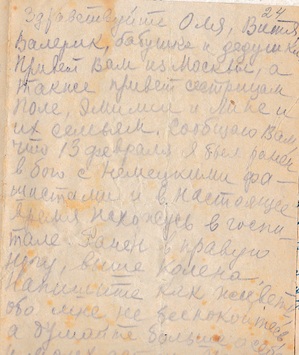 24
Здравствуйте Оля, Витя,
Валерик, бабушка и дедушка
Привет Вам из Москвы, а
также привет сестрицам
Поле, и
их семьям. Сообщаю Вам,
что 13 февраля я был ранен
в бою с немецкими фа-
шистами и в настоящее
время нахожусь в госпи-
тале. Ранен в правую
ногу, выше колена.
Напишите как живёте
обо мне не беспокойтесь
а думайте больше о